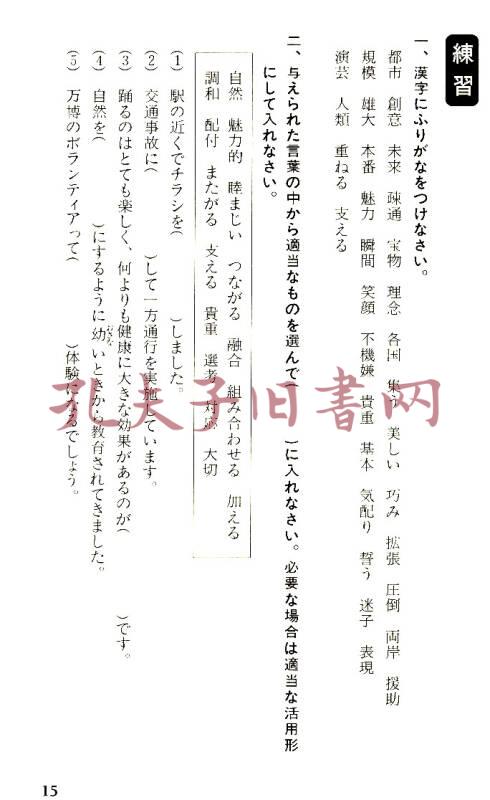 練習
一、漢字にふりがなをつけなさい。
都市 創意 未来 疎通 宝物 理念 各国 集う 美しい 巧み 拡張 圧倒 両岸 援助
規模 雄大 本番 魅力 瞬間 笑顔 不機嫌 貴重 基本 気配り 誓う 迷子 表現
演芸 人類 重ねる 支える
二、与えられた言葉の中から適当なものを選んで( )に入れなさい。必要な場合は適当な活用形
にして入れなさい。
自然 魅力的 睦まじい つながる 融合 組み合わせる 加える
調和 配付 またがる 支える 貴重 選考 対応 大切
(1) 駅の近くでチラシを( )しました。
(2) 交通事故に( )して一方通行を実施しています。
(3) 踊るのはとても楽しく、何よりも健康に大きな効果があるのが( )です。
(4) 自然を( )にするように幼いときから教育されてきました。
(5) 万博のボランティアって( )体験になるでしょう。
15
孔夫子旧书网